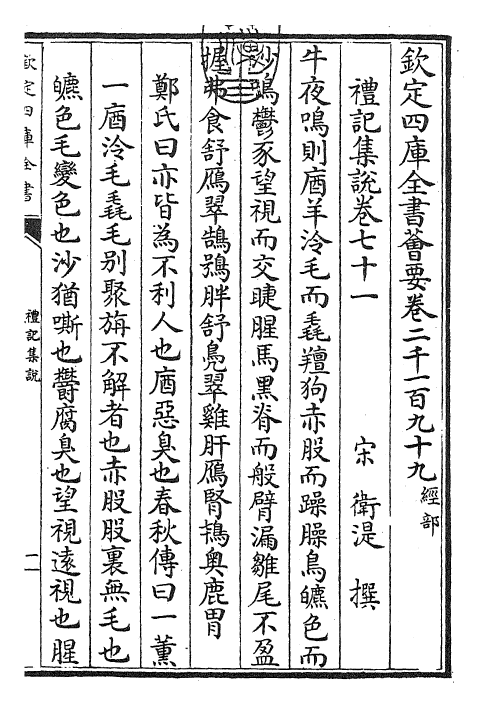 欽定四庫全書薈要卷二千一百九十九經部
禮記集說卷七十一　　宋　衛湜　撰
牛夜鳴則庮羊泠毛而毳羶狗赤股而躁臊鳥皫色而
沙鳴鬱豕望視而交睫腥馬黑脊而般臂漏雛尾不盈
握弗食舒鴈翠鵠鴞胖舒鳧翠雞肝鴈腎鴇奧鹿胃
鄭氏曰亦皆為不利人也庮惡臭也春秋傳曰一薰
一庮泠毛毳毛別聚旃不解者也赤股股裏無毛也
皫色毛變色也沙猶嘶也鬱腐臭也望視逺視也腥
欽定四庫全書
禮記集說
一